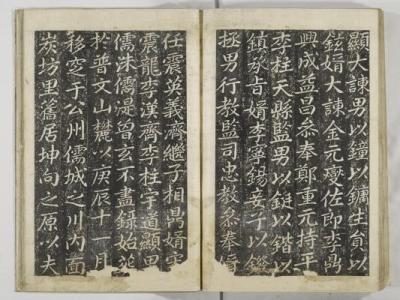 顯大諫男以鐘以鏞生員以
鉉婿大諫金元燮佐郎李鼎
興成益昌恭奉鄭重元持平
李柱天縣監男以鋌以鍇以
鎮承旨婿李寧錫妾子以
拯男行教監司忠教參奉婿
任震英義濟繼子相鼎婿
震龍李漢齊李柱宇道顯男
儒洙儒湜曾玄不盡錄始
於普文山麓以庚辰十一月
移窆于公州儒城之川內面
炭坊里舊居坤向之原以夫